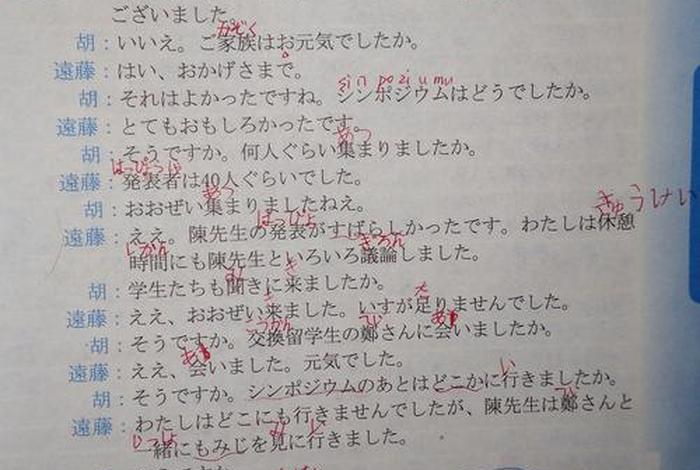 ございました。
胡：いいえ。ご家族はお元気でしたか。
かぞく
遠藤：はい、おかげさまで。
胡：それはよかったですね。シンポジウムはどうでしたか。
sin pozi umu
遠藤：とてもおもしろかったです。
胡：そうですか。何人ぐらい集まりましたか。
あつ
遠藤：発表者は40人ぐらいでした。
胡：おおぜい集まりましたねえ。
あつ
遠藤：ええ。陳先生の発表がすばらしかったです。わたしは休憩
はっぴょ
きゅうけい
時間にも陳先生といろいろ議論しました。
じかん
ぎろん
胡：学生たちも聞きに来ましたか。
き
遠藤：ええ、おおぜい来ました。いすが足りませんでした。
き
た
胡：そうですか。交換留学生の鄭さんに会いましたか。
あ
遠藤：ええ、会いました。元気でした。
あ
胡：そうですか。シンポジウムのあとはどこかに行きましたか。
い
遠藤：わたしはどこにも行きませんでしたが、陳先生は鄭さんと
一緒にもみじを見に行きました。
いっしょ
み
い